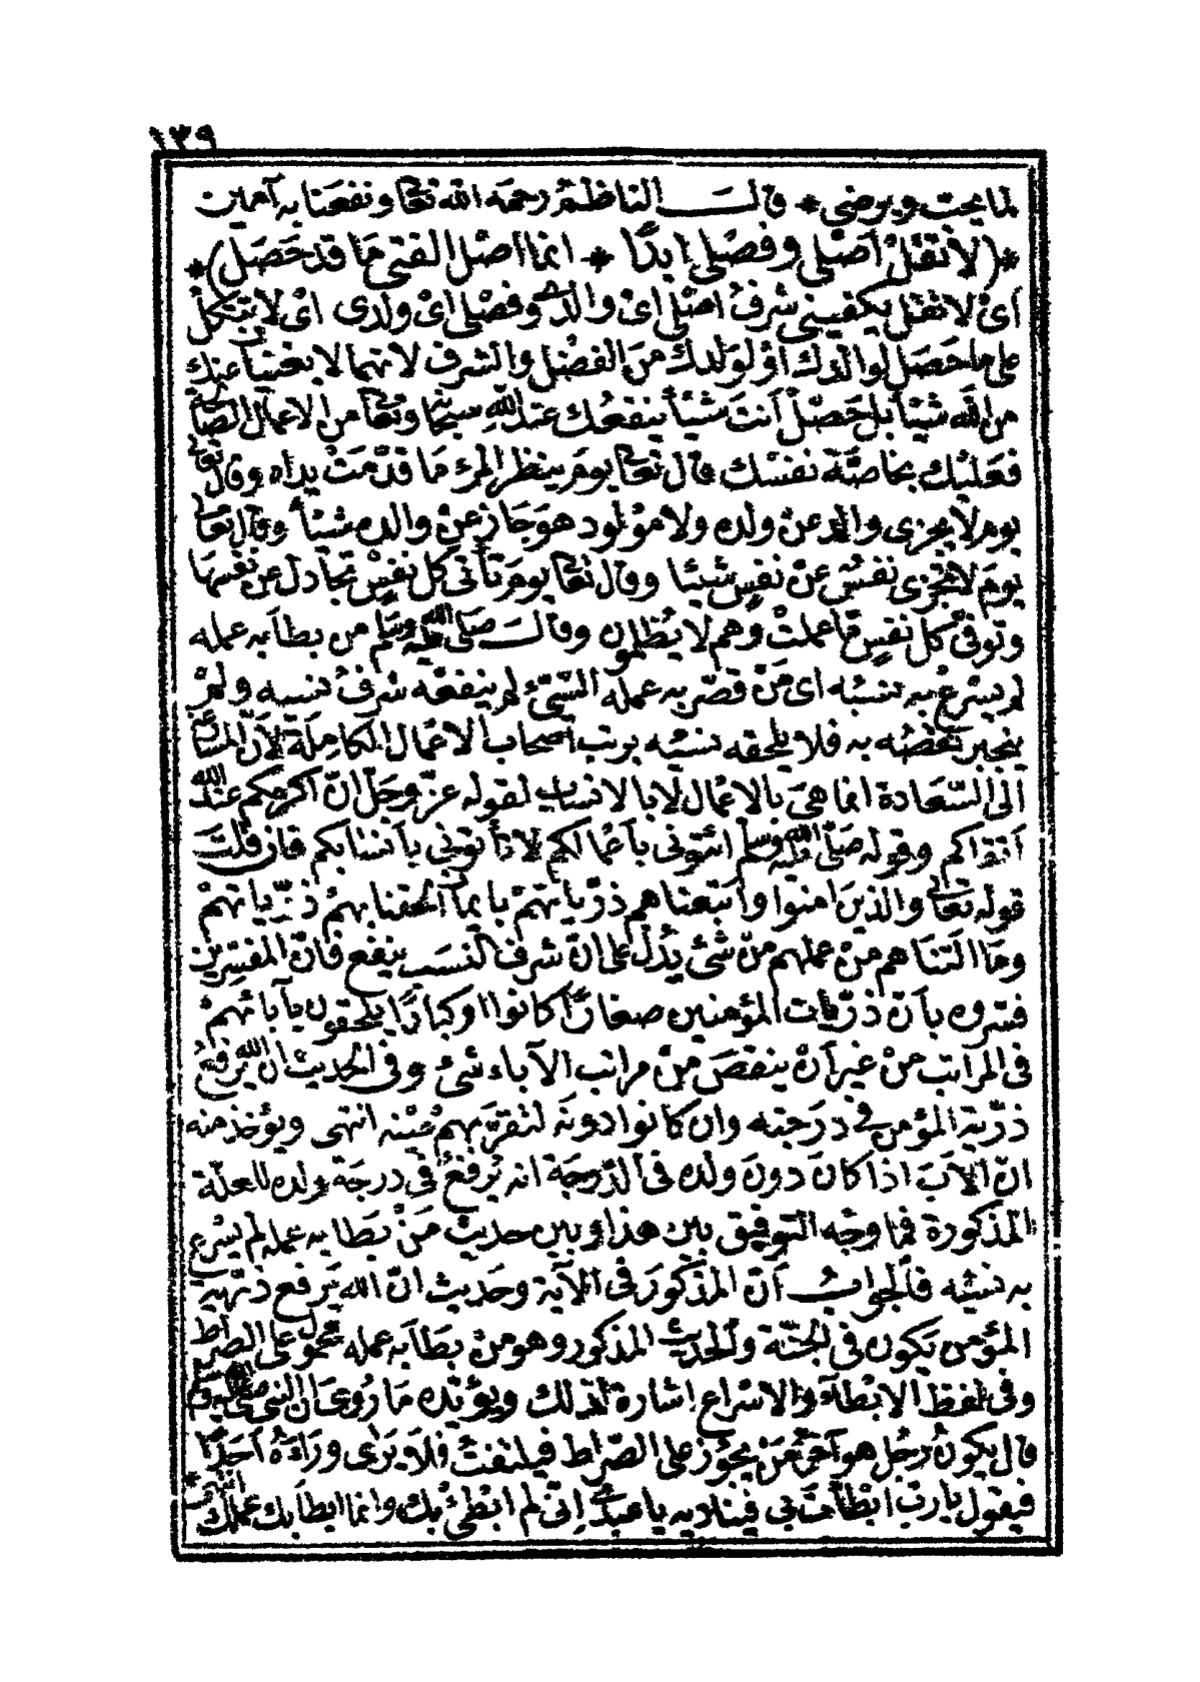 ١٣٩
لما يحب ويرضى * قالــ الناظم رحمه الله تعالى ونفعنا به آمين
*(لا تقل أصلي وفصلي ابدًا * انما اصل الفتى ما قد حصل)*
أي لا تقل يكفيني شرف اصلي اى والدى وفصلى اى ولدى اى لا تتكل
على ما حصل لوالدك أو لولدك من الفضل والشرف لانهما لا يغنيا عنك
من الله شيئا بل حصل أنت شيئا ينفعك عند الله سبحانه وتعالى من الاعمال الصالحة
فعليك بخاصة نفسك قال تعالى يوم ينظر المرء ما قدمت يداه وقال تعالى
يوم لا يجزى والد عن ولده ولا مولود هو جاز عن والده شيئا وقال تعالى
يوم لا تجزى نفس عن نفس شيئا وقال تعالى يوم تأتى كل نفس تجادل عن نفسها
وتوفى كل نفس ما عملت وهم لا يظلمون وقالــ صلى الله عليه وسلم من بطأ به عمله
لم يسرع به نسبه اى من قصر به عمله السيئ لم ينفعه شرف نسبه ولم
ينجبر نقصه به فلا يلحقه نسبه برتب أصحاب الاعمال الكاملة لأن المسارعة
الى السعادة انما هي بالاعمال لا بالانساب لقوله عز وجل ان اكرمكم عند الله
أتقاكم وقوله صلى الله عليه وسلم ائتونى بأعمالكم لا تأتونى بأنسابكم فان قلت
قوله تعالى والذين امنوا وأتبعناهم ذرياتهم بايمان ألحقنا بهم ذرياتهم
وما التناهم من عملهم من شئ يدل على ان شرف النسب ينفع فان المفسرين
فسروه بأن ذريات المؤمنين صغارًا كانوا او كبارًا يلحقون بآبائهم
فى المراتب من غير أن ينقص من مراتب الآباء شئ وفى الحديث ان الله يرفع
ذرية المؤمن في درجته وان كانوا دونه لتقر بهم عينه انتهى ويؤخذ منه
ان الاب اذا كان دون ولده فى الدرجة انه يرفع فى درجة ولده للعلة
المذكورة فما وجه التوفيق بين هذا وبين حديث من بطا به عمله لم يسرع
به نسبه فالجوابــ أن المذكور فى الآية وحديث ان الله يرفع ذرية
المؤمن يكون في الجنة والحديث المذكور وهو من بطأ به عمله محمول على الصراط
وفى لفظ الابطاء والاسراع اشارة لذلك ويؤيده ما روى ان النبى صلى الله عليه وسلم
قال يكون رجل هو آخر من يجوز على الصراط فيلتفت فلا يرى وراءه أحدًا
فيقول يا رب ابطأت بى فيناديه يا عبدى إنى لم ابطئ بك وانما ابطأ بك عملك انتهى *